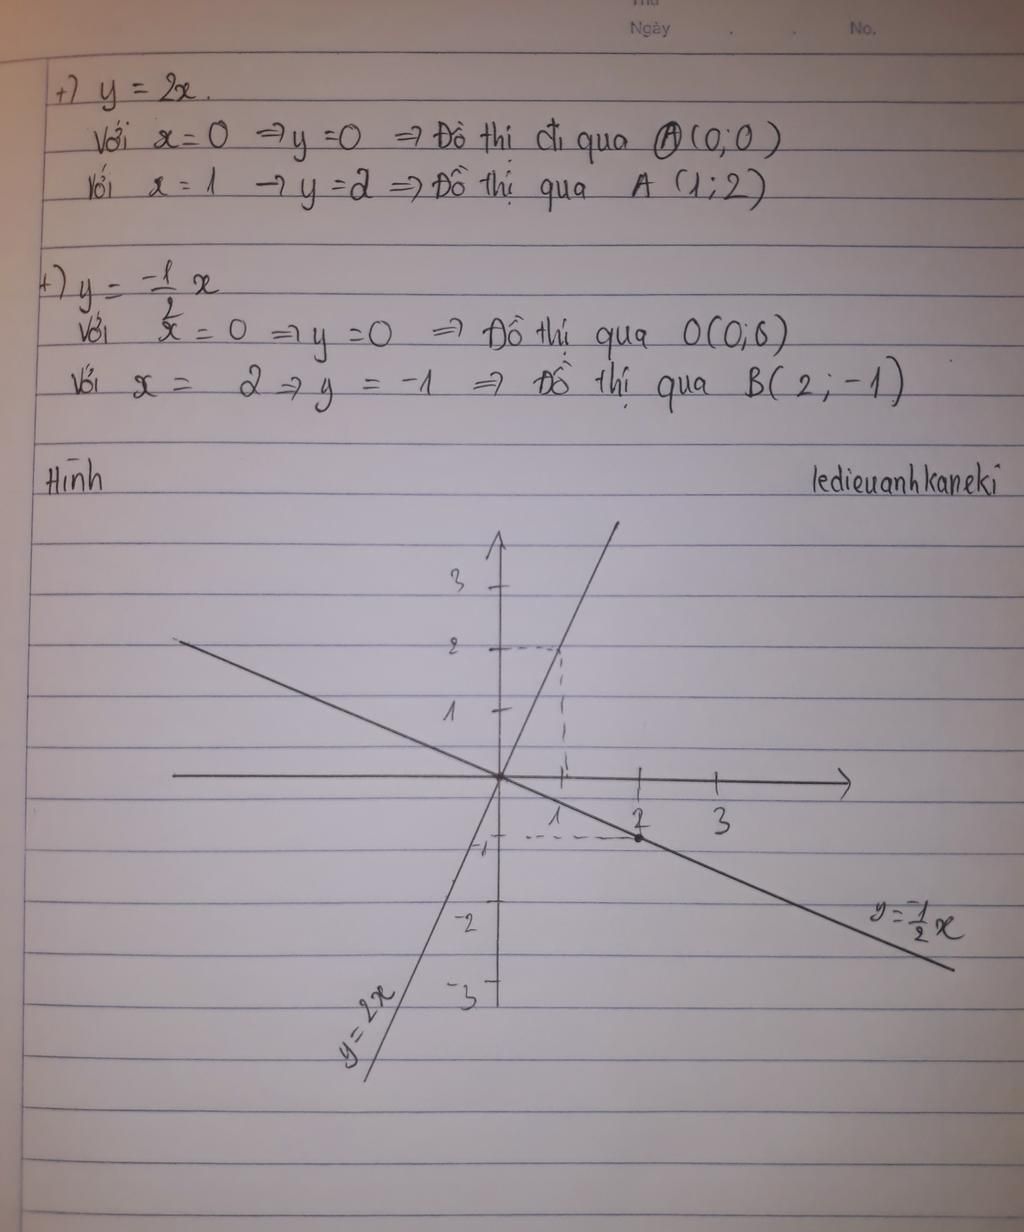 Thứ
Ngày . . No.
+) y = 2x.
Với x = 0 => y = 0 => Đồ thị đi qua O(0;0)
Với x = 1 -> y = 2 => Đồ thị qua A (1;2)
+) y = -1/2 x
Với x = 0 => y = 0 => Đồ thị qua O(0;0)
Với x = 2 => y = -1 => Đồ thị qua B(2;-1)
Hình ledieuanhkaneki
3
2
1
1 2 3
-1
-2
y = -1/2 x
-3
y = 2x